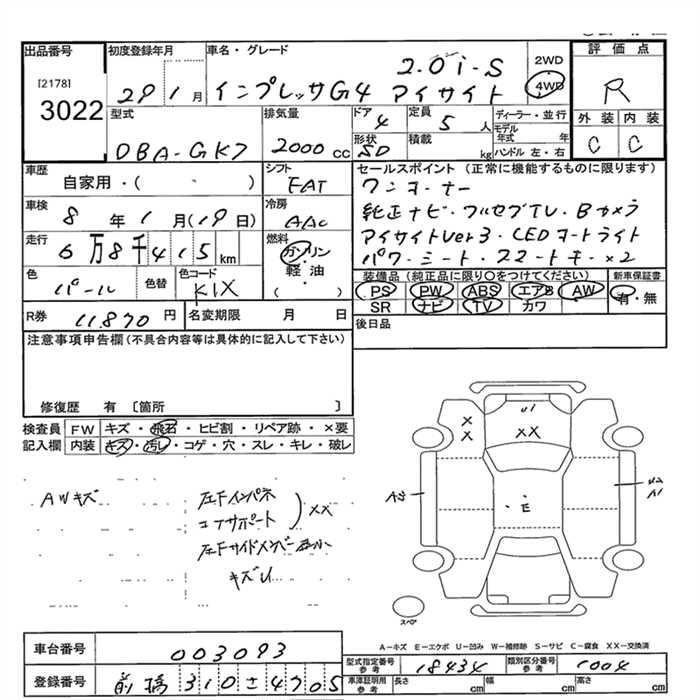 出品番号
[2178]
3022
初度登録年月
29 1 月
車名・グレード
インプレッサG4 2.0i-S アイサイト
2WD
4WD
評価点
R
外装 内装
C C
型式
DBA-GK7
排気量
2000 cc
ドア
4
形状
SD
定員
5 人
積載
kg
ディーラー・並行
モデル年式 年
ハンドル 左・右
車歴
自家用・( ・ )
シフト
FAT
車検
8 年 1 月(19日)
冷房
AAC
走行
6万8千415km
燃料
ガソリン
軽・油
( )
色
パール
色替
色コード
K1X
R券
11,870 円
名変期限 月 日
セールスポイント(正常に機能するものに限ります)
ワンオーナー
純正ナビ・フルセグTV・Bカメラ
アイサイトVer3・LEDオートライト
パワーシート・スマートキー×2
装備品(純正品に限り○をつけてください)
新車保証書
PS PW ABS エアB AW
有・無
SR ナビ TV カワ
後日品
注意事項申告欄(不具合内容等は具体的に記入して下さい)
修復歴 有 [箇所 ]
検査員記入欄
FW キズ・飛石・ヒビ割・リペア跡・×要
内装 キズ・汚レ・コゲ・穴・スレ・キレ・破レ
AWキズ
左Fインパネ
コアサポート
XX
左Fサイドメンバー
キズU
U1
X
X
XX
A2
・E
U2
A1
スペア
A-キズ E-エクボ U-凹み W-補修跡 S-サビ C-腐食 XX-交換済
車台番号
003093
登録番号
前橋 310 さ 4705
型式指定番号
参考
18434
類別区分番号
参考
1004
車庫証明用
参考
長さ cm
幅 cm
高さ cm